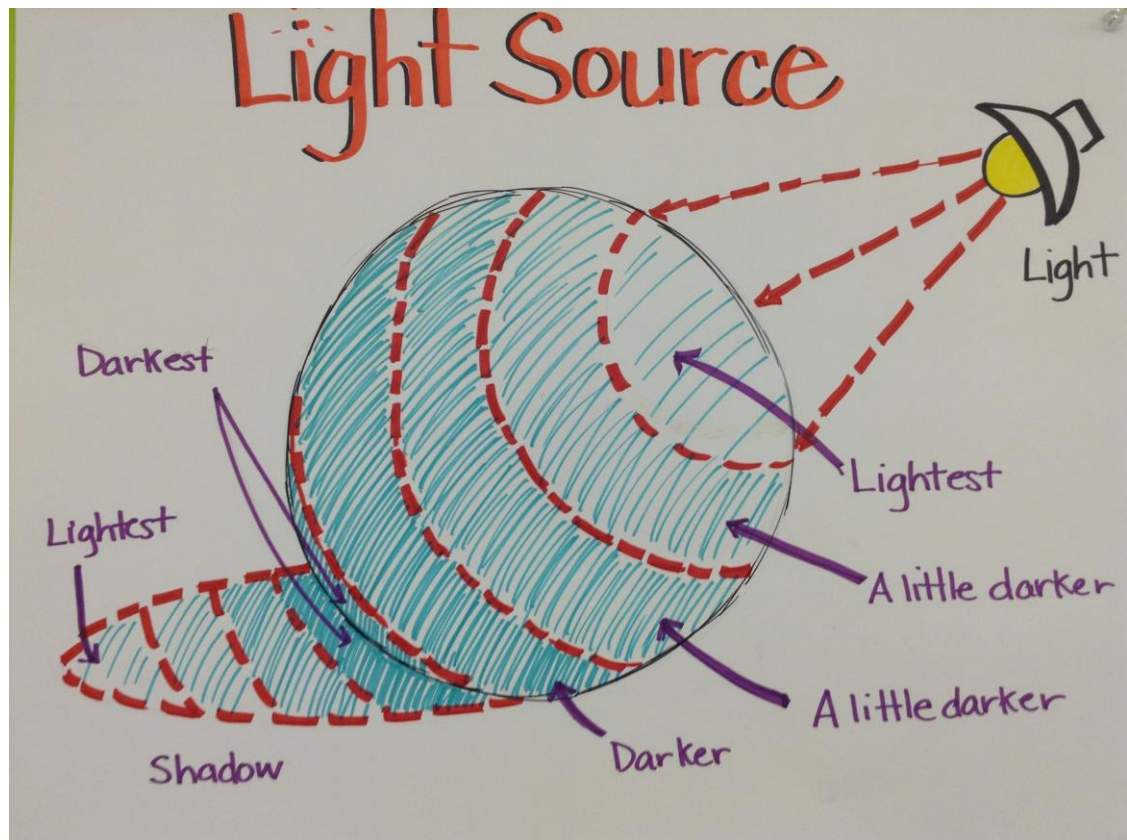 Light Source
Light
Darkest
Lightest
Lightest
A little darker
A little darker
Darker
Shadow